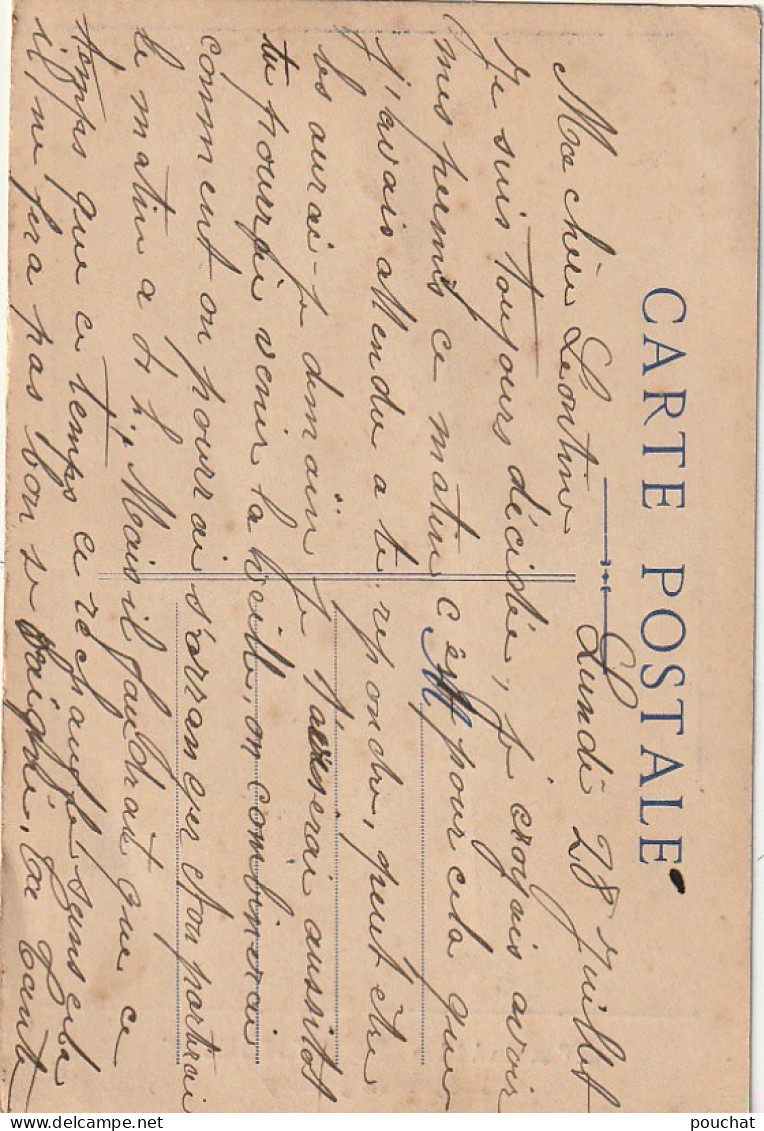 CARTE POSTALE
Lundi 28 Juillet
Ma chère Léontine
Je suis toujours décidée, je croyais avoir
mes permis ce matin c'est pour cela que
j'avais attendu a te repondre, peut être
les aurai-je demain je t'aviserai aussitot
tu pourrai venir la veille, on combinerai
comment on pourrai s'arranger et on partirai
le matin a 4 h, Mais il faudrait que ce
temps que ce temps ce réchauffe sans cela
il ne fera pas bon se baigné, ta tante
pouchat